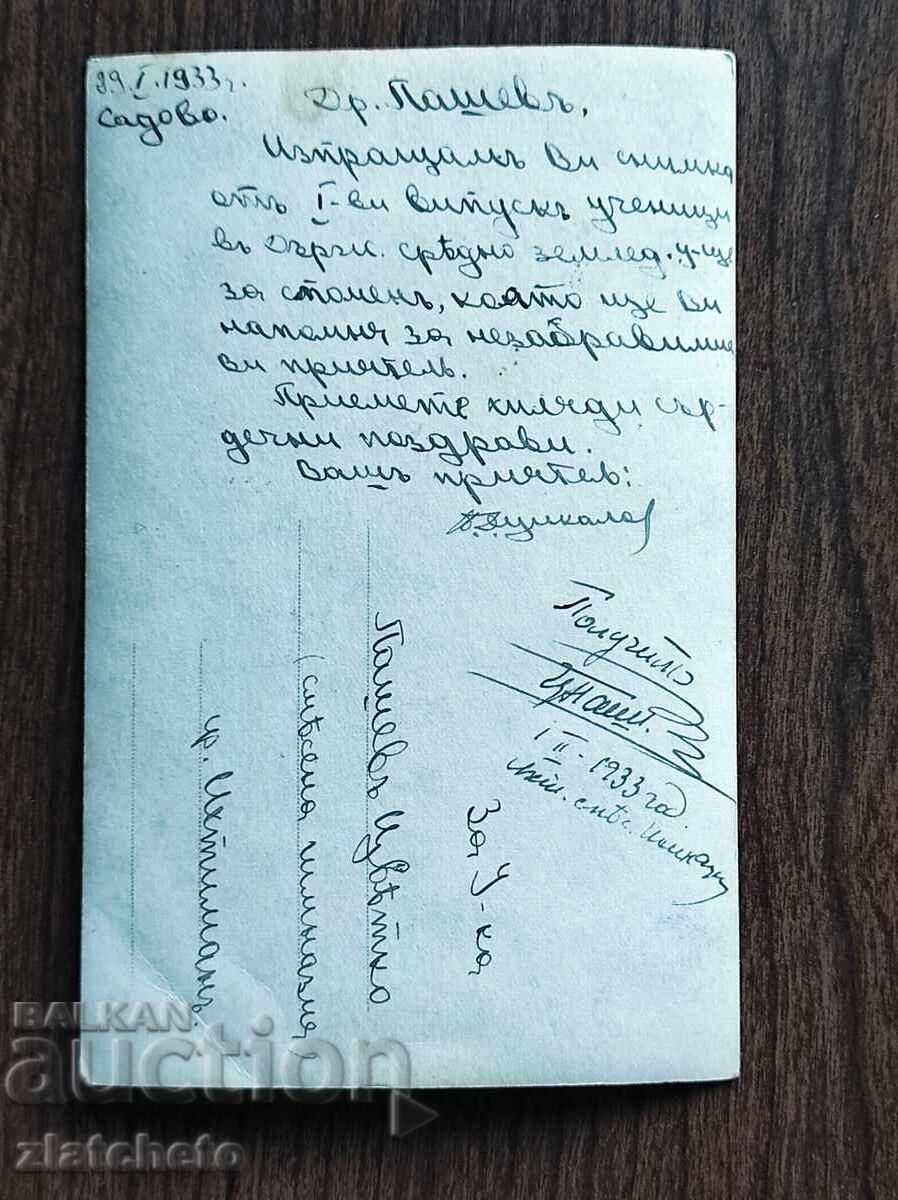 29.I.1933г.
Садово.
Др. Пашевъ,
Изпращамъ Ви снимка
отъ I-ви випускъ ученици
въ Държ. срѣдно землед. у-ще
за споменъ, която ще Ви
напомня за незабравимия
ви приятель.
Приемете хиляди сър-
дечни поздрави.
Вашъ приятел:
Получилъ
1 II - 1933 год
За У-ка
Пашевъ Цвѣтко
(смѣсена гимназия)
гр. Ихтиманъ.
BALKAN
auction
zlatcheto